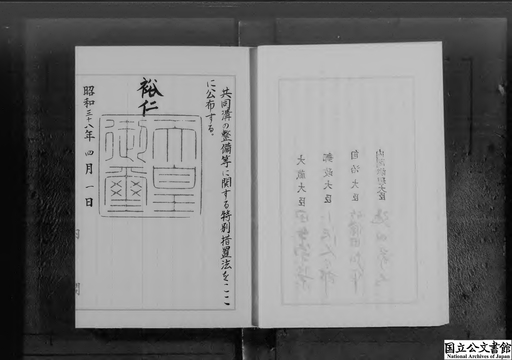 共同溝の整備等に関する特別措置法をここ
に公布する。
裕仁
天皇
御璽
昭和三十八年四月一日
内閣総理大臣
自治大臣
郵政大臣
大蔵大臣
国立公文書館
National Archives of Japan